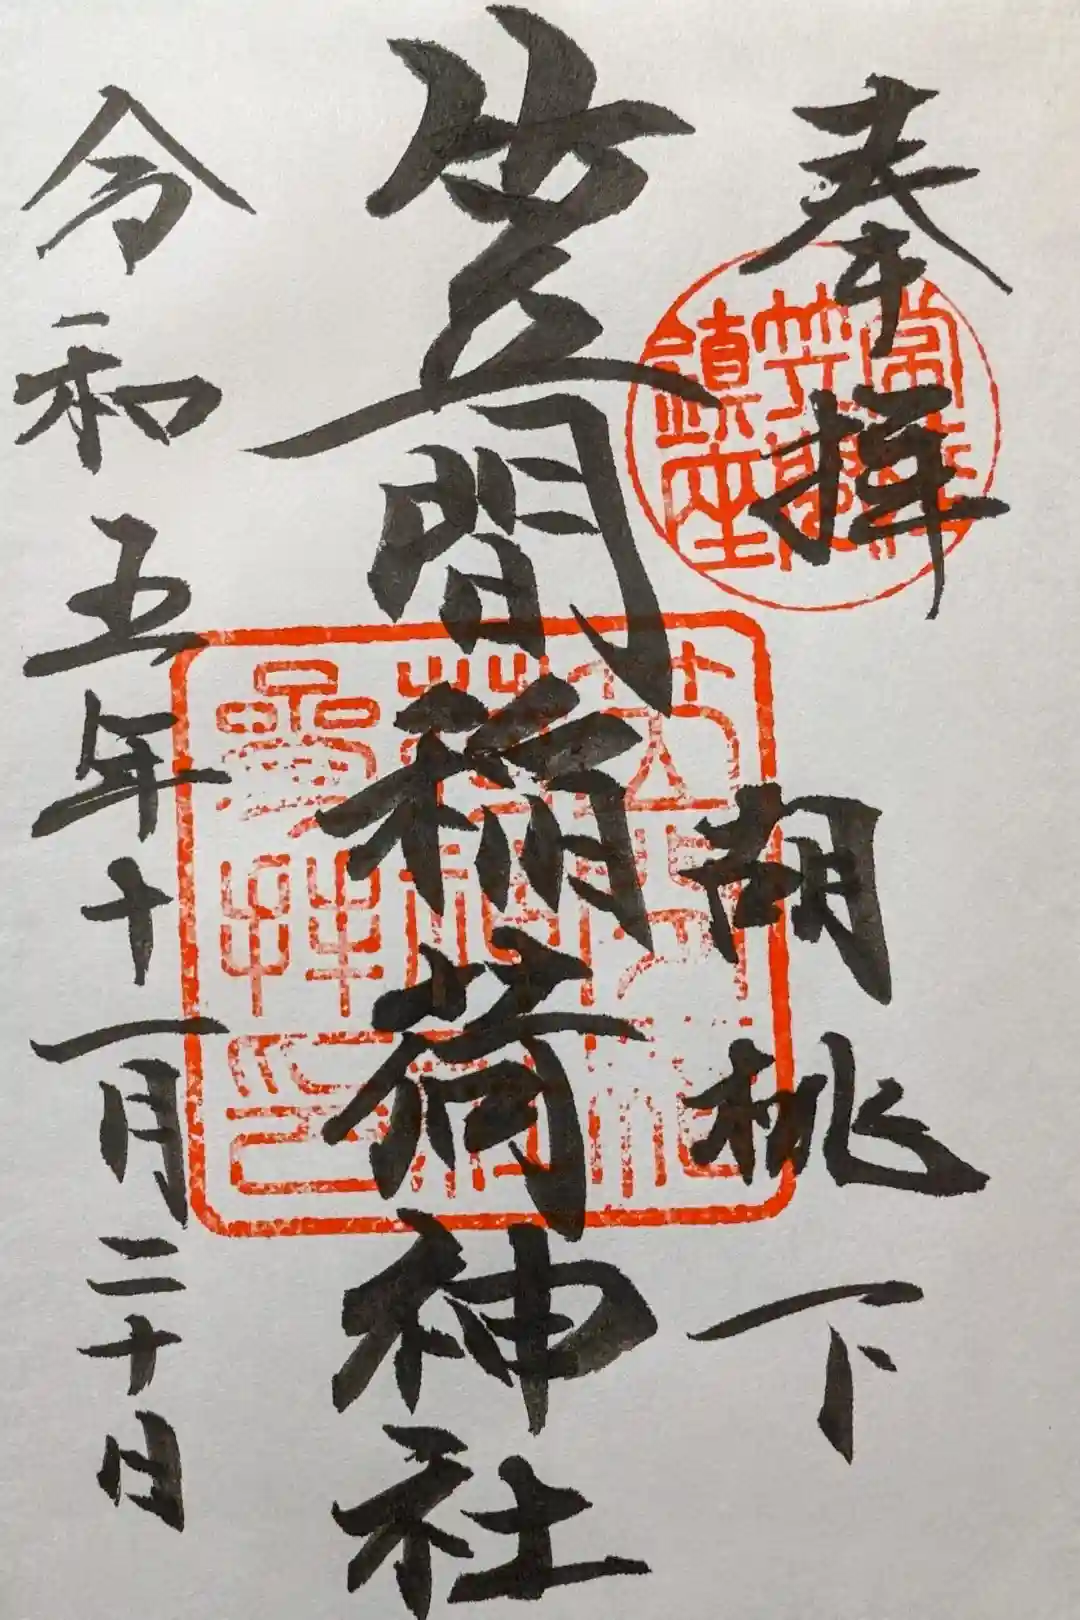 奉拝
胡桃下
笠間稲荷神社
令和五年十一月二十日
常陸
笠間
鎮座
笠間
稲荷